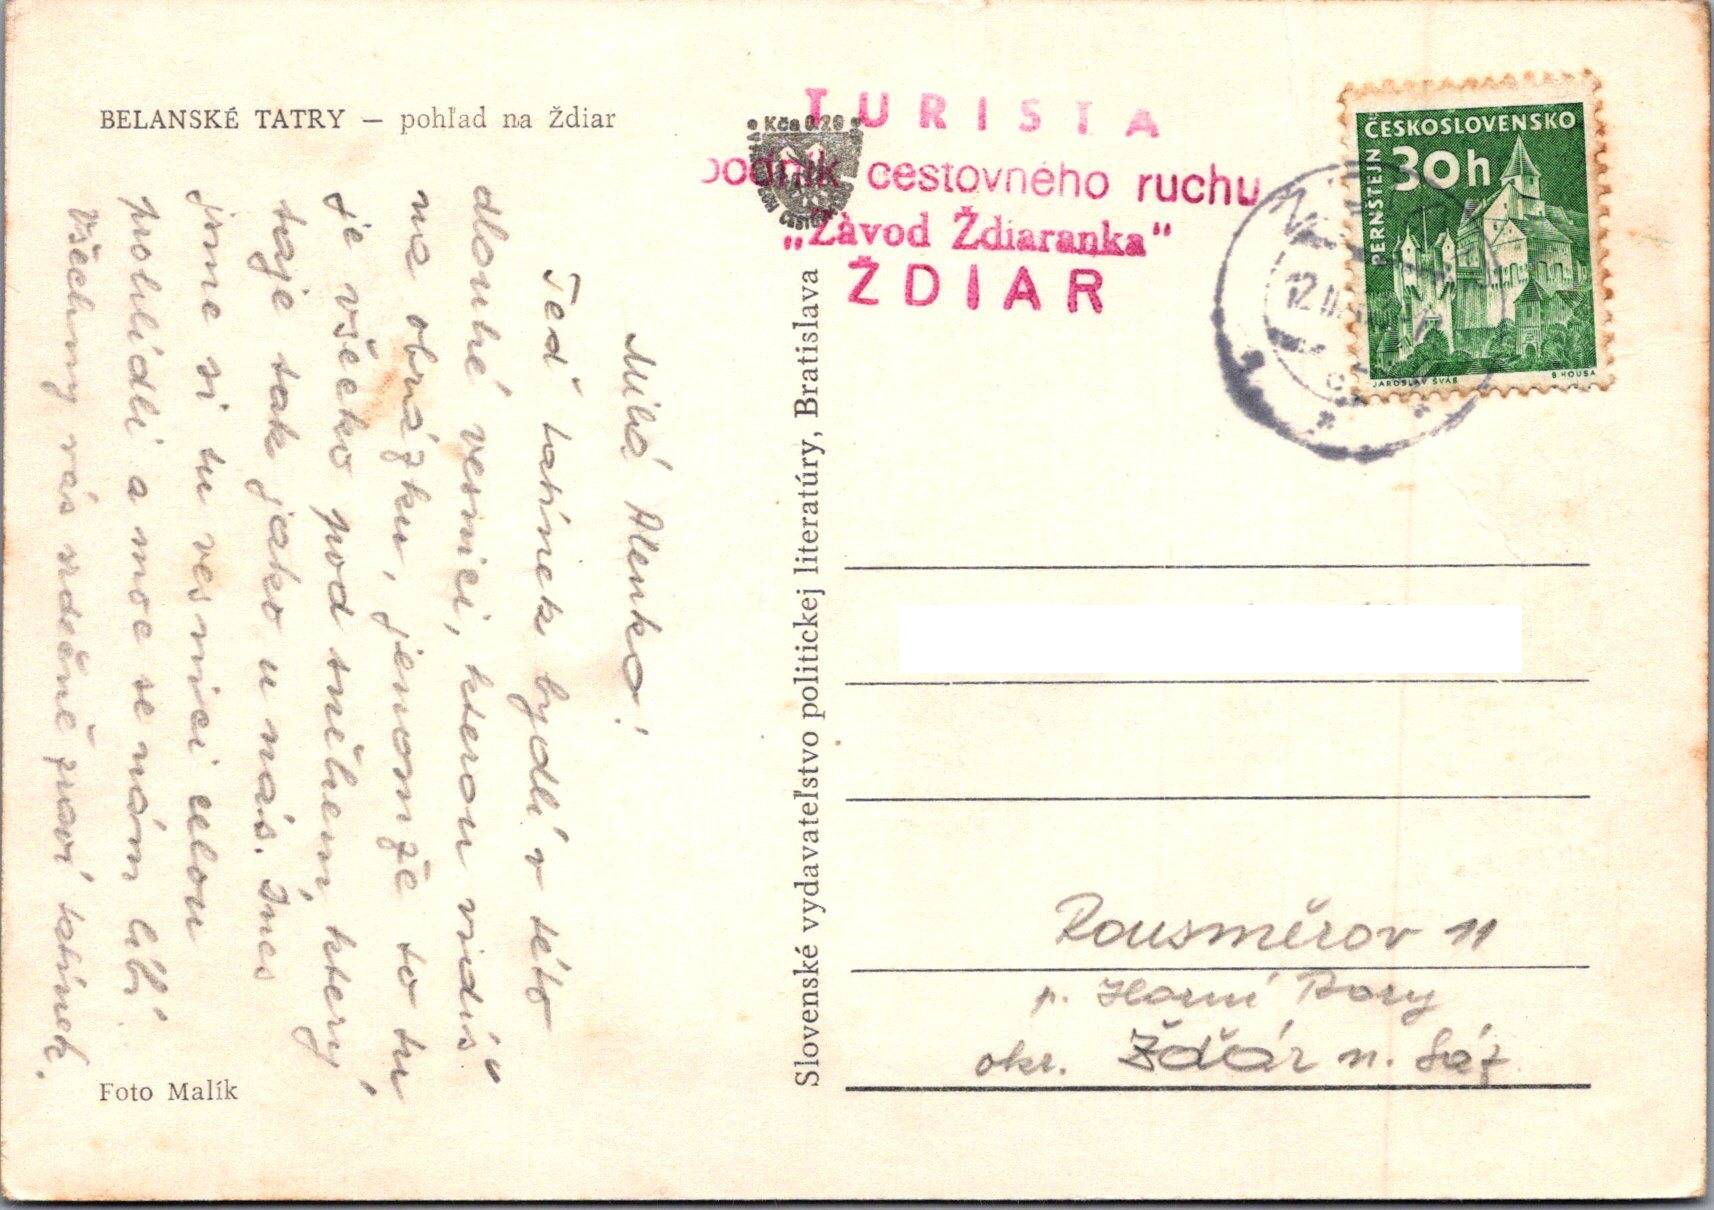 BELANSKÉ TATRY — pohľad na Ždiar
Milá Alenko!
Teď tatínek bydlí v této
dlouhé vesnici, kterou vidíš
na obrázku, jenomže to tu
je všecko pod sněhem, který
taje tak jako u nás. Dnes
jsme si tu vesnici celou
prohlídli a moc se nám líbí.
Všechny vás srdečně zdraví tatínek.
Foto Malík
Slovenské vydavateľstvo politickej literatúry, Bratislava
Kčs 0,20
TURISTA
podnik cestovného ruchu
„Závod Ždiaranka"
ŽDIAR
ČESKOSLOVENSKO
30h
PERNŠTEJN
JAROSLAV ŠVÁB
B. HOUSA
12.II.
Rousměrov 11
p. Horní Bory
okr. Žďár n. Sáz.